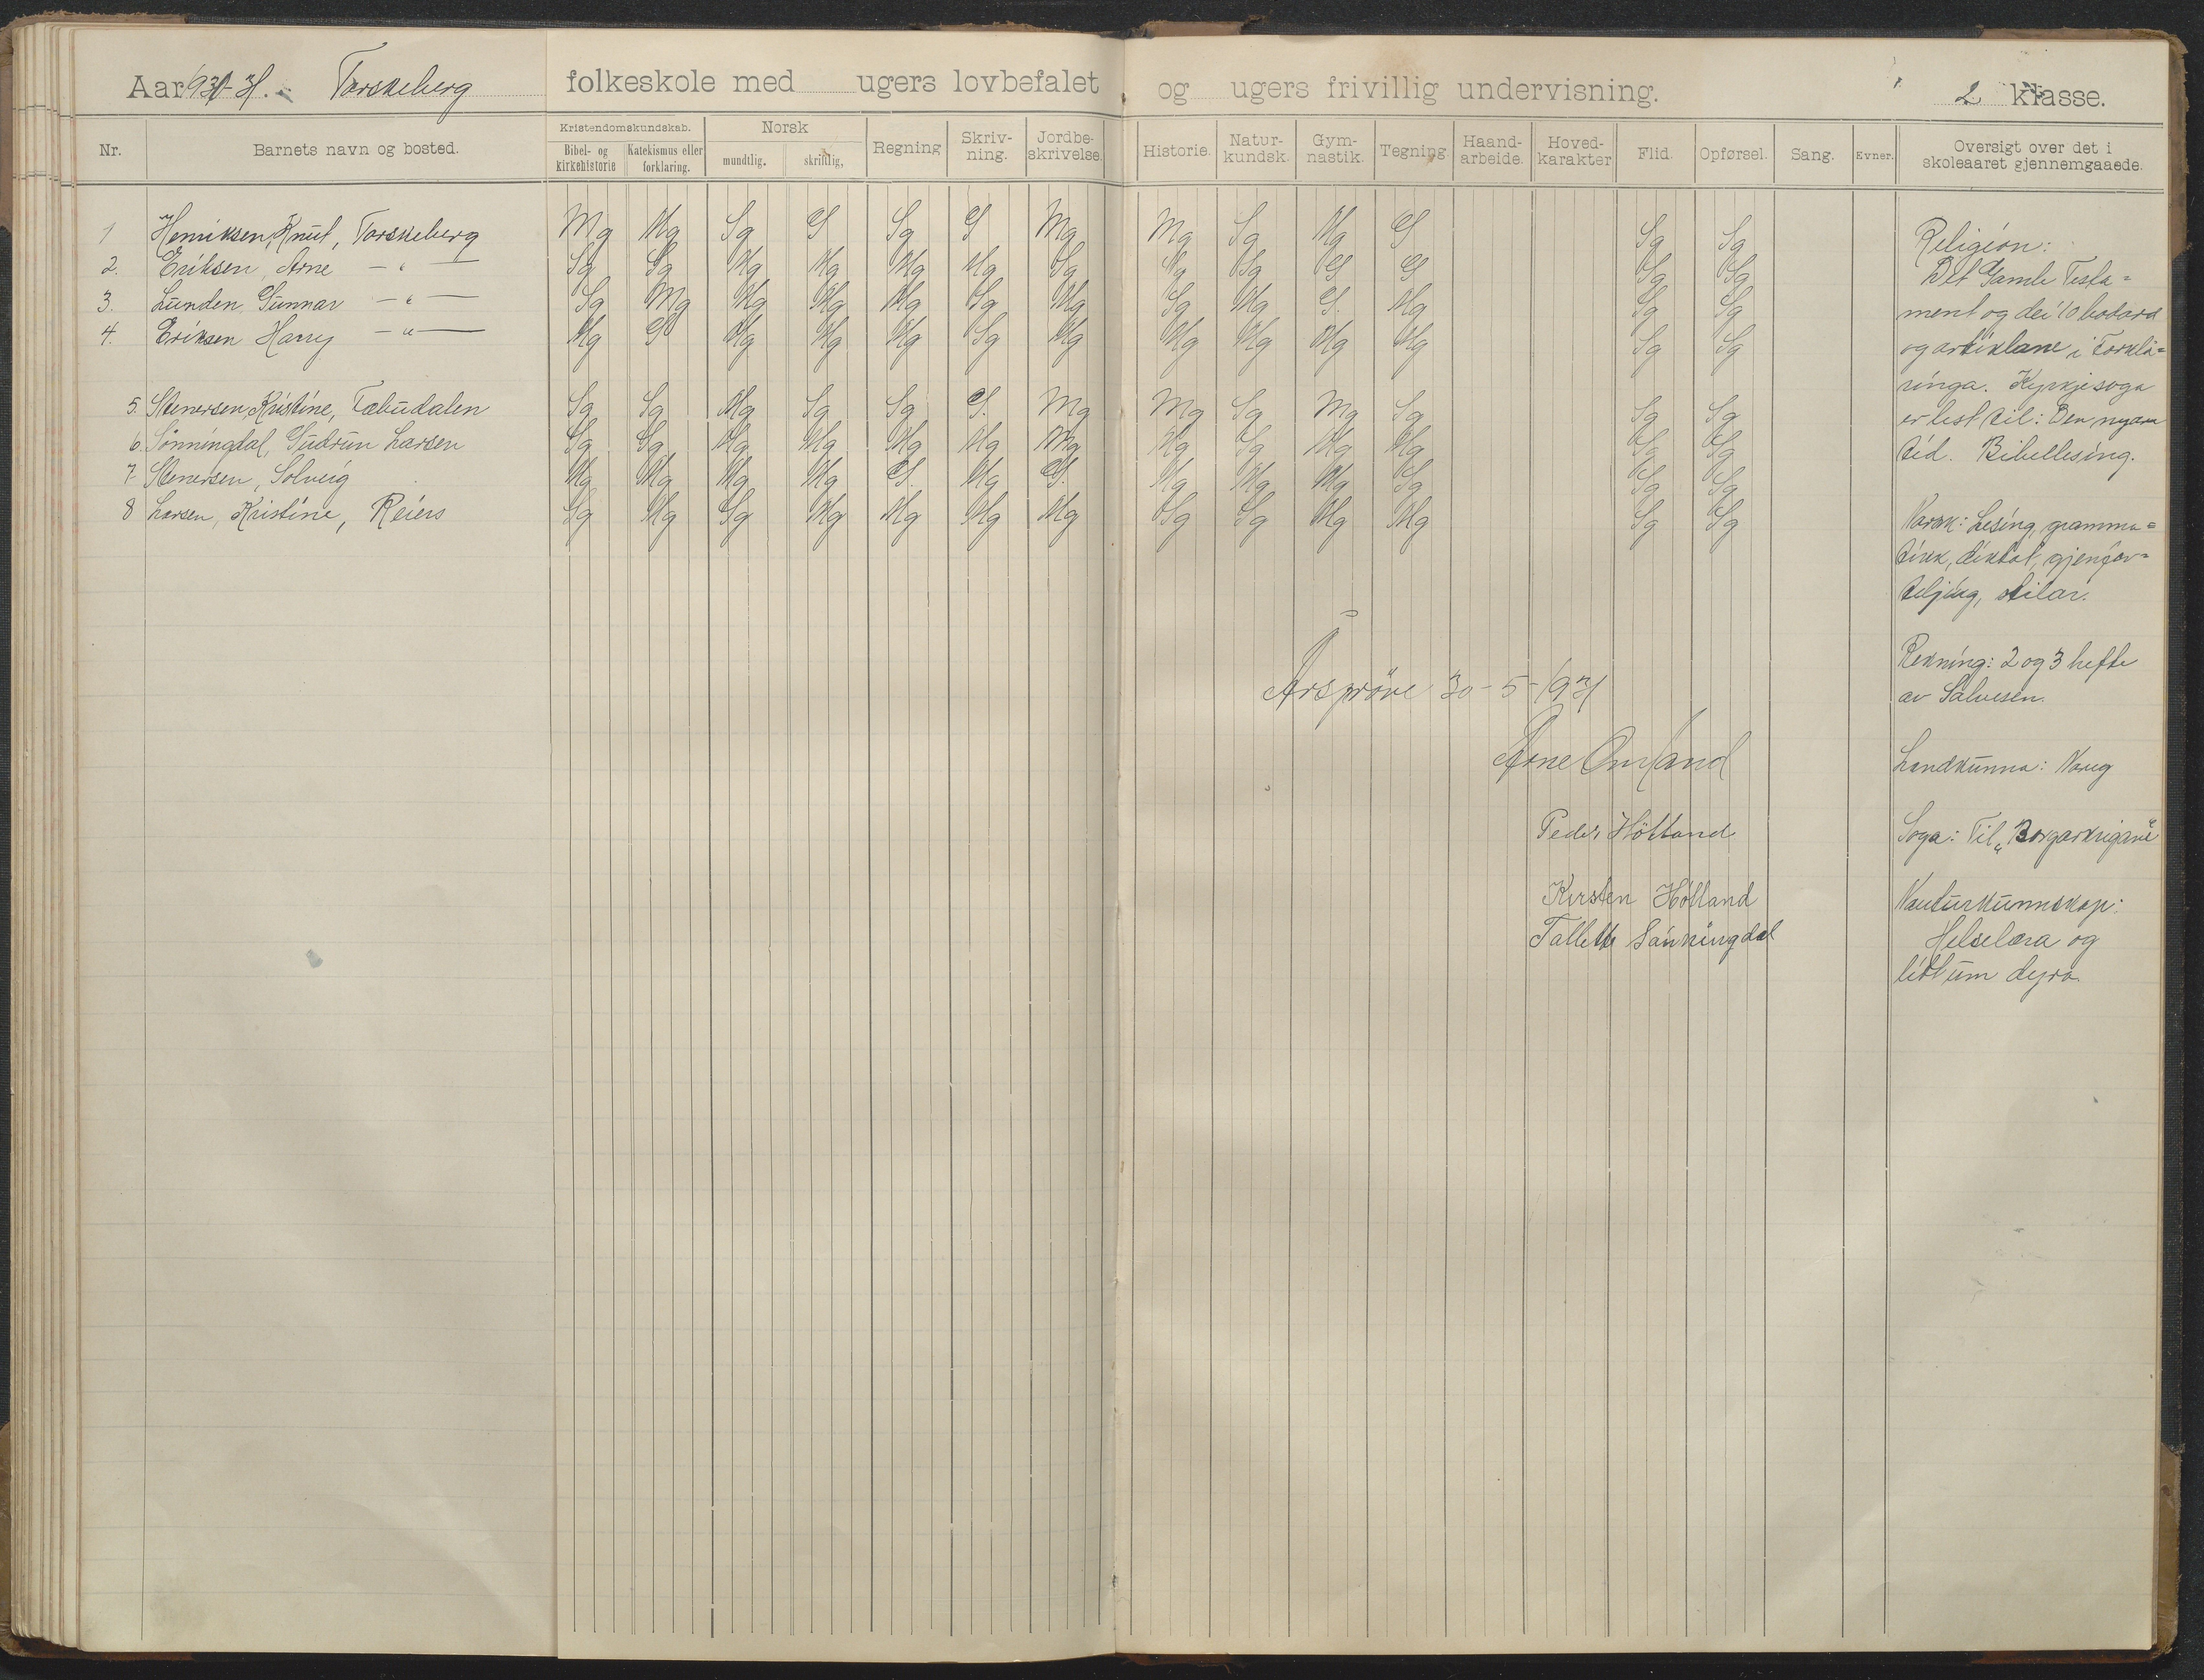 Aar 1930-31. Torskeberg folkeskole med ugers lovbefalet og ugers frivillig undervisning. 2 klasse.
Nr. Barnets navn og bosted. Kristendomskundskab. Bibel- og kirkehistorie Katekismus eller forklaring. Norsk mundtlig. skriftlig, Regning Skriv-ning. Jordbe-skrivelse. Historie. Natur-kundsk. Gym-nastik. Tegning. Haand-arbeide. Hoved-karakter Flid. Opførsel. Sang. Evner. Oversigt over det i skoleaaret gjennemgaaede.
1 Henriksen, Knut, Torskeberg Mg Mg Sg G Sg G Mg Mg Sg Mg G Sg Sg
2. Eriksen, Arne — " — Sg Sg Mg Mg Mg Mg Sg Mg Sg G G Sg Sg
3. Lunden, Gunnar — " — Sg Mg Mg Mg Mg Sg Mg Sg Mg G. Mg Sg Sg
4. Eriksen Harry — " — Mg G Mg Mg Mg Sg Mg Mg Mg Mg Mg Sg Sg
5. Stenersen, Kristine, Tæbudalen Sg Sg Mg Sg Sg G. Mg Mg Sg Mg Sg Sg Sg
6. Sønningdal, Gudrun Larsen Sg Sg Mg Mg Mg Mg Mg Mg Sg Mg Mg Sg Sg
7. Stenersen, Solveig Mg Mg Mg Mg G. Mg G. Mg Mg Mg Sg Sg Sg
8 Larsen, Kristine, Reiers Sg Mg Sg Mg Mg Mg Mg Sg Sg Mg Mg Sg Sg
Religion:
Det Gamle Testa=
ment og dei 10 bodord
og artiklane i Forkla=
ringa. Kyrkjesoga
er lest til: Den nyare
tid. Bibellesing.
Norsk: Lesing, gramma=
tikk, diktat, gjenfor=
teljing, stilar.
Rekning: 2 og 3 hefte
av Salvesen.
Landkunna: Noreg
Soga: Til „Borgarkrigane"
Nauturkunnskap:
Helselæra og
litt um dyra
Årsprøve 30-5-1931
Arne Omland
Peder Høiland
Kirsten Høiland
Tallette Sønningdal